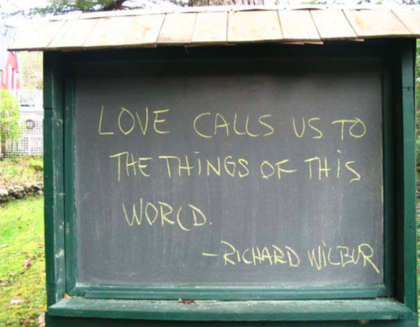 LOVE CALLS US TO
THE THINGS OF THIS
WORLD.
-RICHARD WILBUR